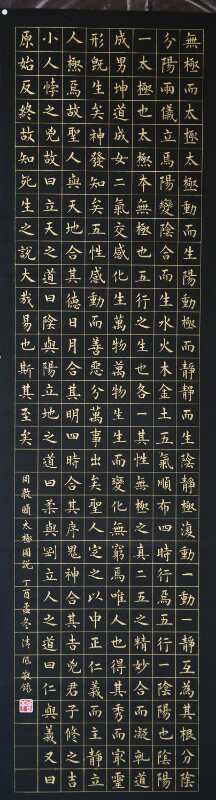 無極而太極太極動而生陽動極而靜靜而生陰靜極復動一動一靜互為其根分陰
分陽兩儀立焉陽變陰合而生水火木金土五氣順布四時行焉五行一陰陽也陰陽
一太極也太極本無極也五行之生也各一其性無極之真二五之精妙合而凝乾道
成男坤道成女二氣交感化生萬物萬物生生而變化無窮焉唯人也得其秀而最靈
形既生矣神發知矣五性感動而善惡分萬事出矣聖人定之以中正仁義而主靜立
人極焉故聖人與天地合其德日月合其明四時合其序鬼神合其吉凶君子修之吉
小人悖之凶故曰立天之道曰陰與陽立地之道曰柔與剛立人之道曰仁與義又曰
原始反終故知死生之說大哉易也斯其至矣
周敦頤太極圖說 丁酉孟冬 清風敬錄